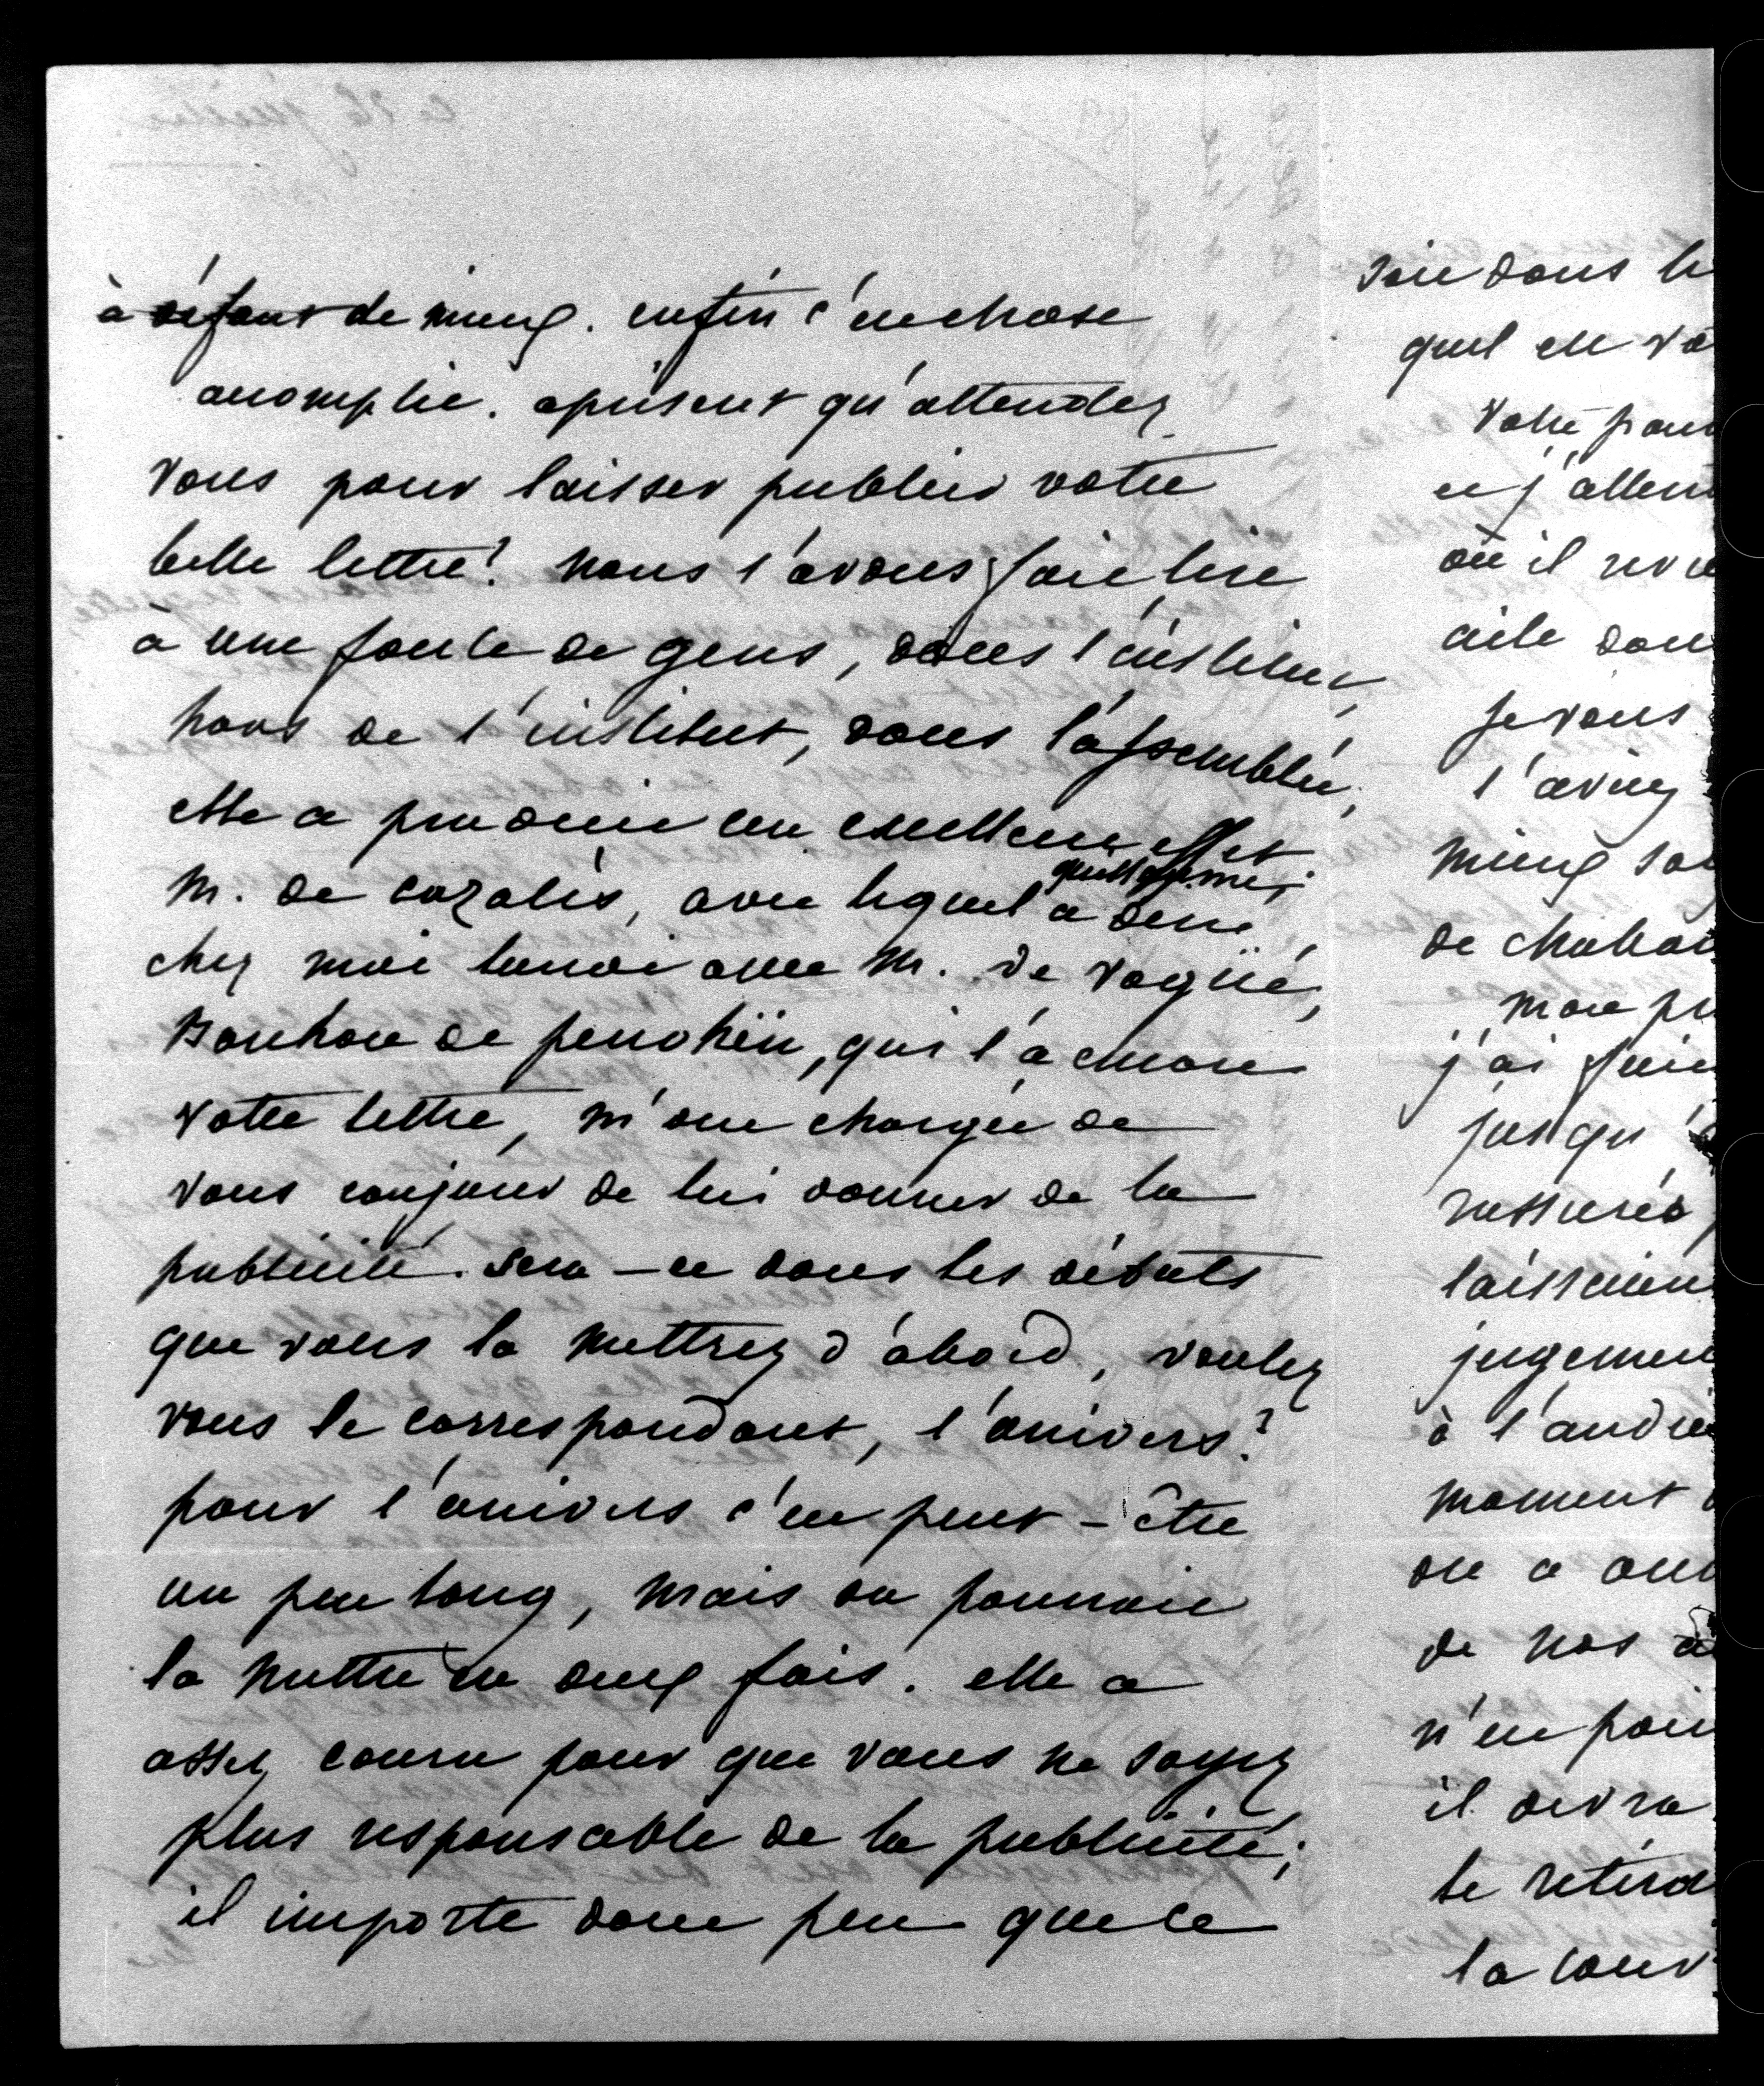 à défaut de mieux. enfin c'en chose
accomplie. aprisent qu'attendez
vous pour laisser publier votre
belle lettre? nous l'avons fait lire
à une foule de gens, dans l'institut,
hors de l'institut, dans l'assemblée,
elle a produit un excellent effet
M. de cazalès, avec lequel a diné
chez moi lundi avec M. de Vogüé,
Bonhore de penohën, qui l'a
votre lettre, m'ont chargée de
vous conjurer de lui donner de la
publicité. sera-ce dans les débats
que vous la mettrez d'abord, voulez
vous le correspondant, l'univers?
pour l'univers c'en peut-être
un peu long, mais on pourrait
la mettre en deux fois. elle a
assez couru pour que vous ne soyez
plus responsable de la publicité;
il importe donc peu que le
soit dans le
quel elle
votre
et j'atten
où il
aile
je vous
l'aviez
mieux
de
mon
j'ai fait
jusqu'
rassurés
laissaient
jugement
à l'audie
moment
on a
de nos
n'en
il devra
se
la cour